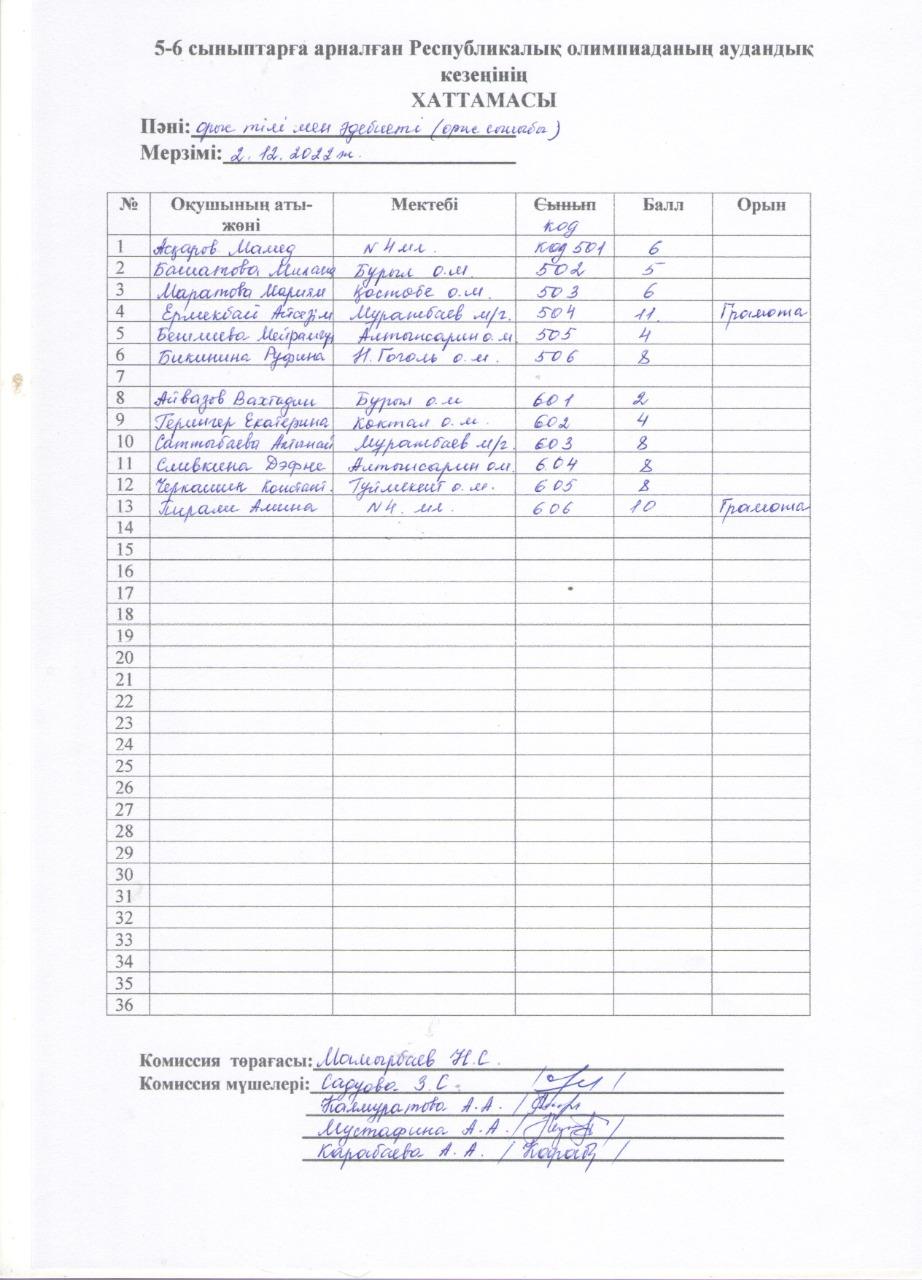 5-6 сыныптарға арналған Республикалық олимпиаданың аудандық
кезеңінің
ХАТТАМАСЫ
Пәні: орыс тілі мен әдебиеті (орыс сыныбы)
Мерзімі: 2.12.2022ж.
№ Оқушының аты-жөні Мектебі Сынып код Балл Орын
1 Асқаров Мамед N4 мл. код 501 6
2 Башатова Милана Бурыл о.м. 502 5
3 Маратова Мариям Қостөбе о.м. 503 6
4 Ермекбай Айсезім Муратбаев м/г. 504 11. Грамота
5 Алтынсарин о.м. 505 4
6 Бикинина Руфина Н. Гоголь о.м. 506 8
7
8 Айвазов Бурыл о.м 601 2
9 Герингер Екатерина Коктал о.м. 602 4
10 Саттыбаева Муратбаев м/г. 603 8
11 Сливкина Дэфне Алтынсарин ом. 604 8
12 Черкашин Констант. Туймекент о.м. 605 8
13 Пирали Амина N4. мл. 606 10 Грамота
14
15
16
17
18
19
20
21
22
23
24
25
26
27
28
29
30
31
32
33
34
35
36
Комиссия төрағасы: Мамырбаев Н.С.
Комиссия мүшелері: Садуова З.С.
Калмуратова А.А.
Мустафина А.А.
Карабаева А.А.